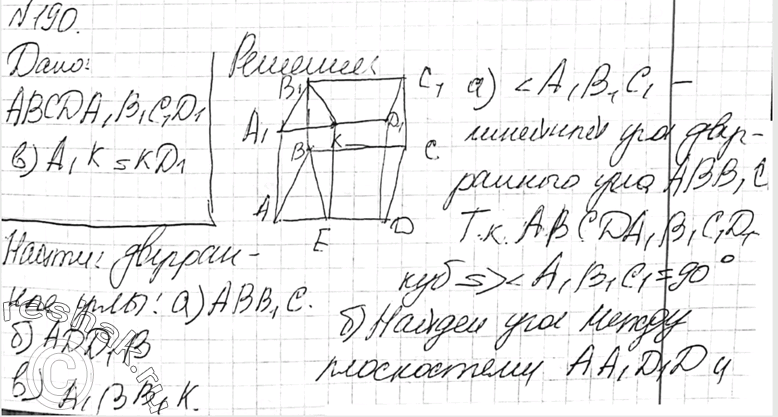 №190.
Дано:
ABCDA₁B₁C₁D₁
в) A₁K = KD₁
Найти: двугран-
ные углы: а) ABB₁C.
б) ADD₁B
в) A₁BB₁K.
Решение:
B₁
C₁
A₁
K
D₁
B
C
A
E
D
а) <A₁B₁C₁ –
линейный угол двуг-
ранного угла ABB₁C
Т.к. ABCDA₁B₁C₁D₁
куб => <A₁B₁C₁=90°
б) Найдем угол между
плоскостями AA₁D₁D и
©